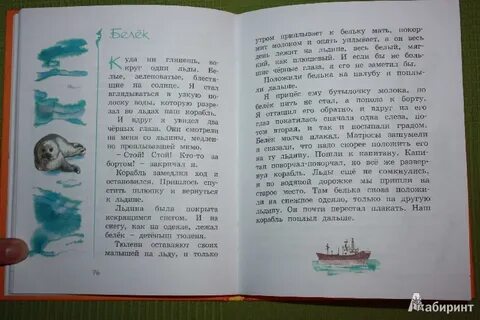 Белёк
Куда ни глянешь, во-
круг одни льды. Бе-
лые, зеленоватые, блестя-
щие на солнце. Я стал
вглядываться в узкую по-
лоску воды, которую разре-
зал во льдах наш корабль.
И вдруг я увидел два
чёрных глаза. Они смотрели
на меня со льдины, медлен-
но проплывавшей мимо.
— Стой! Стой! Кто-то за
бортом! — закричал я.
Корабль замедлил ход и
остановился. Пришлось спу-
стить шлюпку и вернуться
к льдине.
Льдина была покрыта
искрящимся снегом. И на
снегу, как на одеяле, лежал
белёк — детёныш тюленя.
Тюлени оставляют своих
малышей на льду, и только
76
утром приплывает к бельку мать, покор-
мит молоком и опять уплывает, а он весь
день лежит на льдине, весь белый, мяг-
кий, как плюшевый. И если бы не боль-
шие чёрные глаза, я его не заметил бы.
Положили белька на палубу и поплыли
дальше.
Я принёс ему бутылочку молока, но
белёк пить не стал, а пополз к борту.
Я оттащил его обратно, и вдруг из его
глаз покатилась сначала одна слеза, по-
том вторая, и так и посыпали градом.
Белёк молча плакал. Матросы зашумели
и сказали, что надо скорее положить его
на ту льдину. Пошли к капитану. Капи-
тан поворчал-поворчал, но всё же развер-
нул корабль. Льды ещё не сомкнулись,
и по водяной дорожке мы пришли на
старое место. Там белька снова положи-
ли на снежное одеяло, только на другую
льдину. Он почти перестал плакать. Наш
корабль поплыл дальше.
Лабиринт